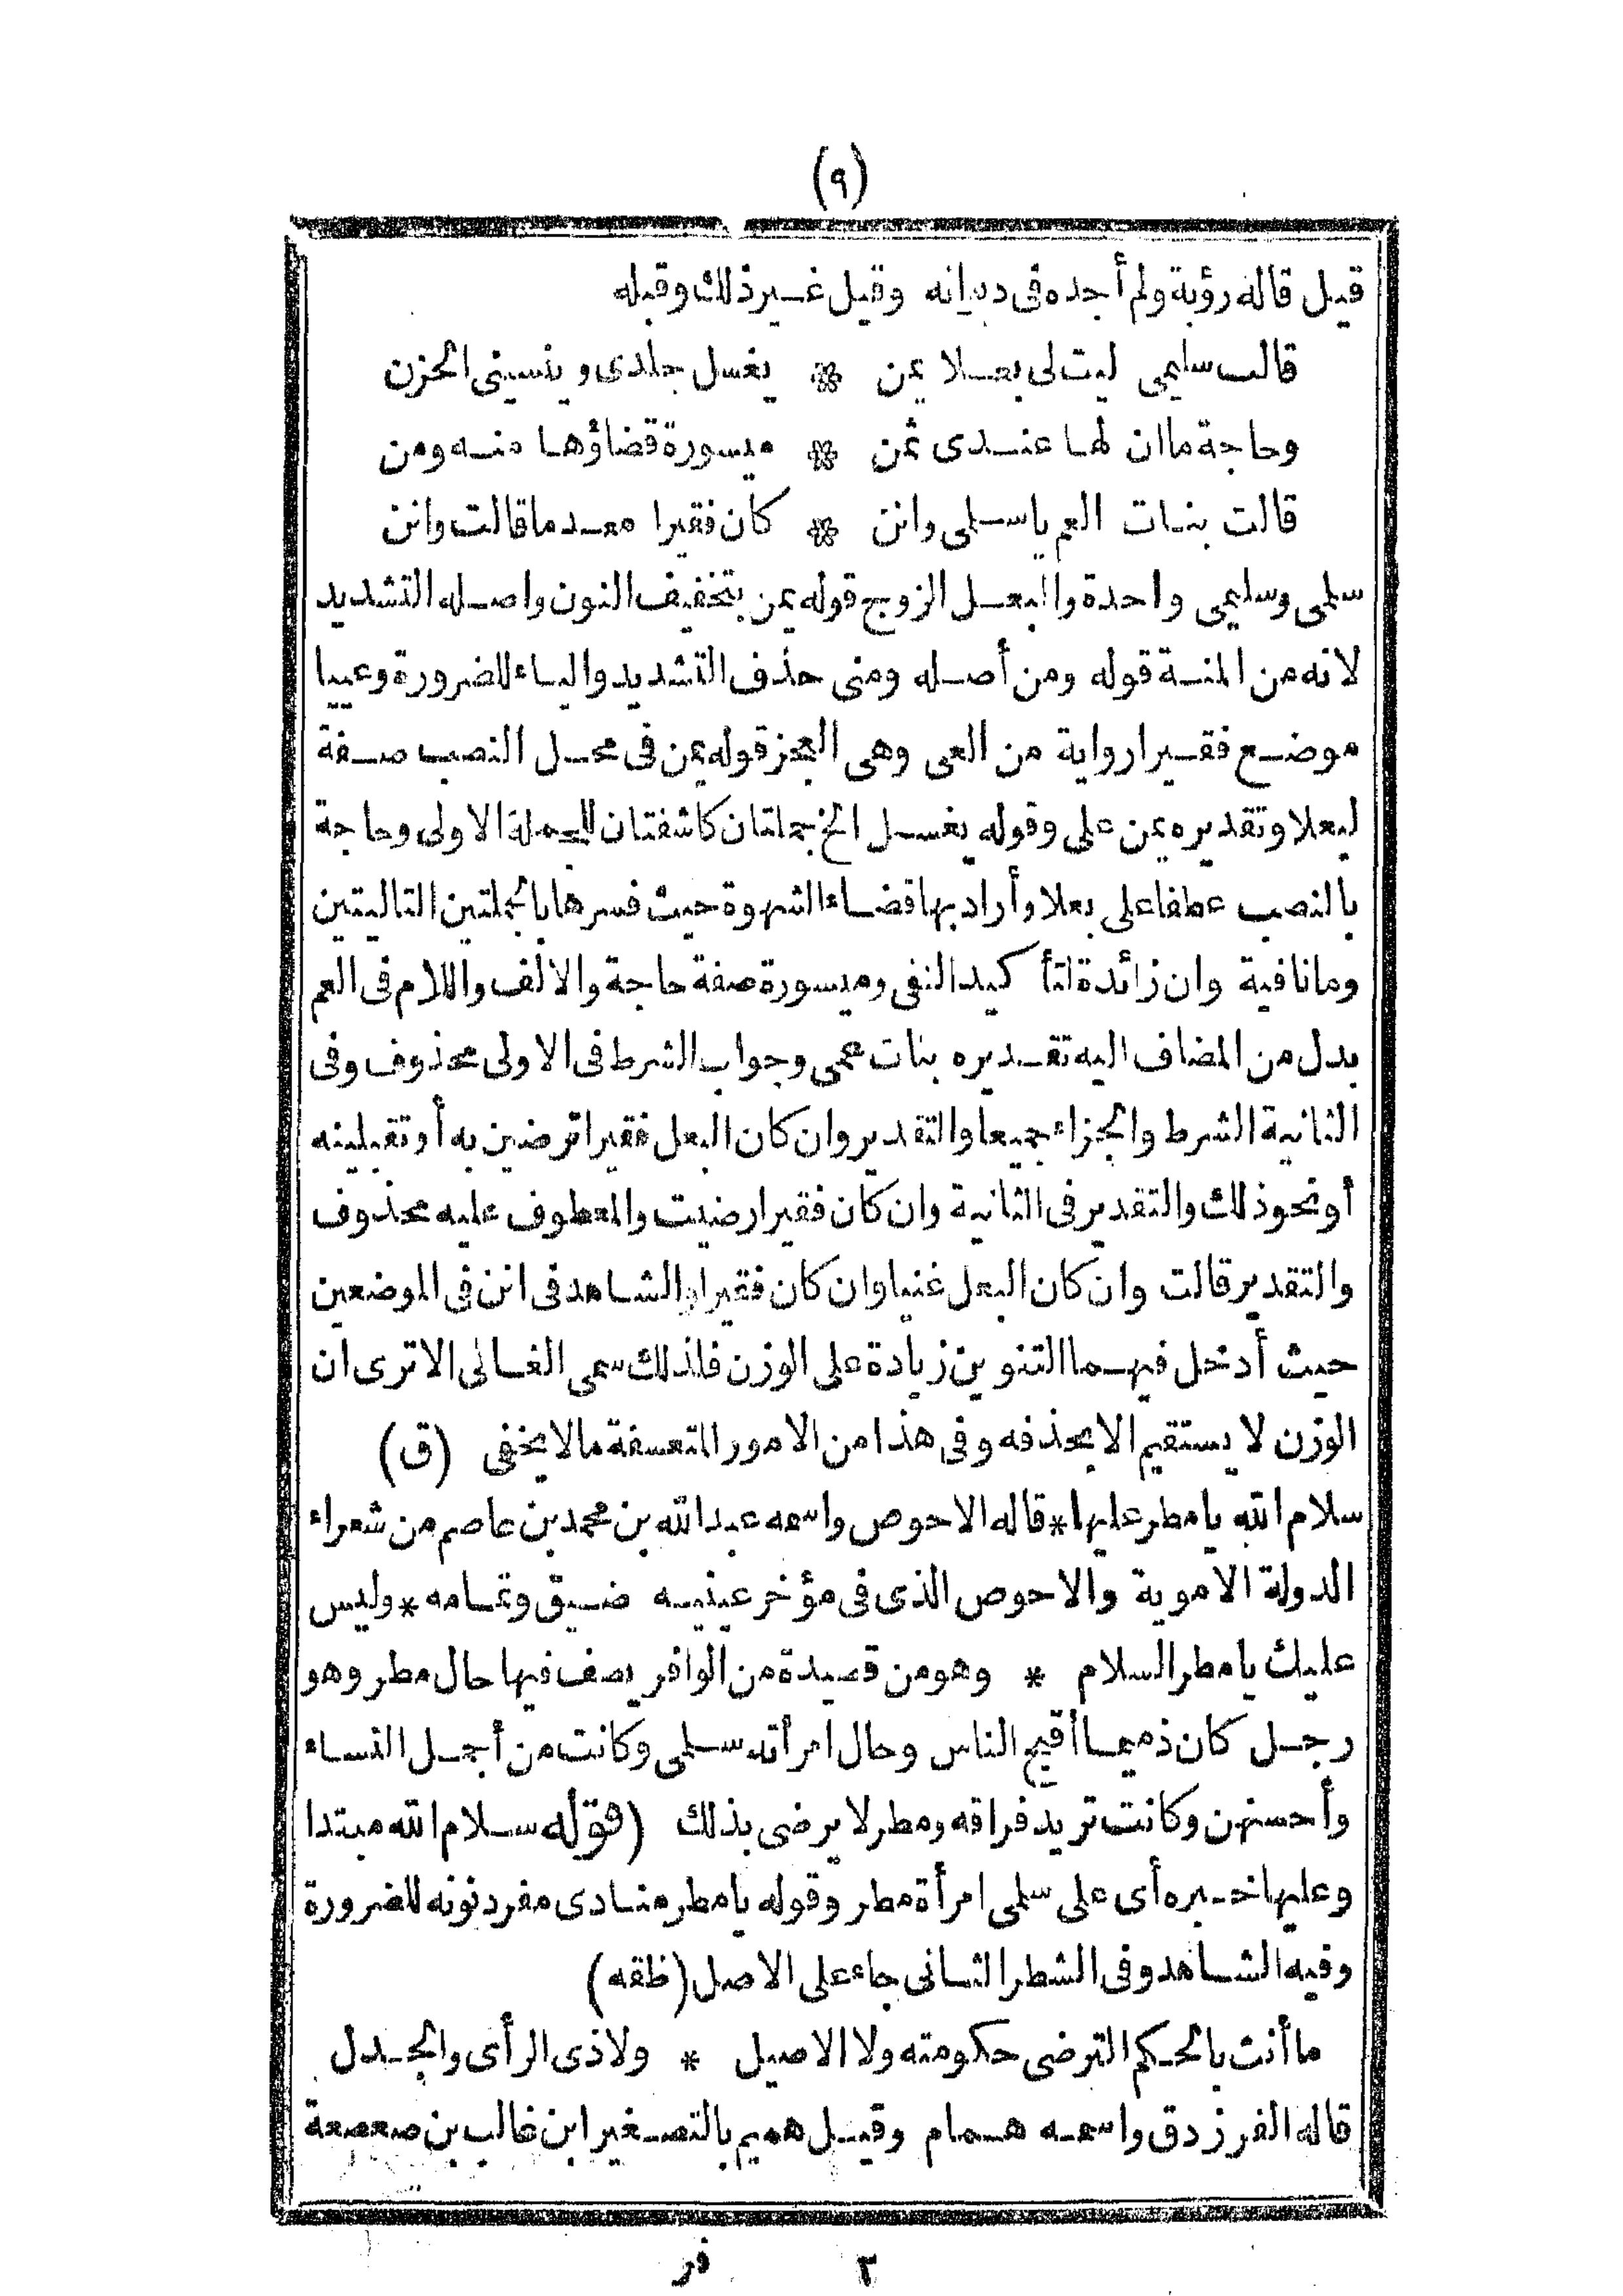 (٩)
قيل قاله رؤبة ولم أجده فى ديوانه وقيل غير ذلك وقبله
قالت سليمى ليت لى بعلا يمن * يغسل جلدى وينسينى الحزن
وحاجة ما ان لها عندى ثمن * ميسورة قضاؤها منه ومن
قالت بنات العم يا سلمى وانن * كان فقيرا معدما قالت وانن
سلمى وسليمى واحدة والبعل الزوج قوله يمن بتخفيف النون واصله التشديد
لانه من المنة قوله ومن أصله ومنى حذف التشديد والياء للضرورة وعييا
موضع فقيرا رواية من العى وهى العجز قوله يمن فى محل النصب صفة
لبعلا وتقديره يمن على وقوله يغسل الخ جملتان كاشفتان للجملة الاولى وحاجة
بالنصب عطفا على بعلا وأراد بها قضاء الشهوة حيث فسرها بالجملتين التاليتين
وما نافية وان زائدة لتأ كيد النفى وميسورة صفة حاجة والالف واللام فى العم
بدل من المضاف اليه تقديره بنات عمى وجواب الشرط فى الاولى محذوف وفى
الثانية الشرط والجزاء جميعا والتقدير وان كان البعل فقيرا ترضين به أو تقبلينه
أو نحو ذلك والتقدير فى الثانية وان كان فقيرا رضيت والمعطوف عليه محذوف
والتقدير قالت وان كان البعل غنيا وان كان فقيرا والشاهد فى انن فى الموضعين
حيث أدخل فيهما التنوين زيادة على الوزن فلذلك سمى الغالى الا ترى ان
الوزن لا يستقيم الا بحذفه وفى هذا من الامور المتعسفة ما لا يخفى (ق)
سلام الله يا مطر عليها * قاله الاحوص واسمه عبد الله بن محمد بن عاصم من شعراء
الدولة الاموية والاحوص الذى فى مؤخر عينيه ضيق وتمامه * وليس
عليك يا مطر السلام * وهو من قصيدة من الوافر يصف فيها حال مطر وهو
رجل كان ذميما أقبح الناس وحال امرأته سلمى وكانت من أجمل النساء
وأحسنهن وكانت تريد فراقه ومطر لا يرضى بذلك (قوله سلام الله مبتدا
وعليها خبره أى على سلمى امرأة مطر وقوله يا مطر منادى مفرد نونه للضرورة
وفيه الشاهد وفى الشطر الثانى جاء على الاصل (ظقه)
ما أنت بالحكم الترضى حكومته ولا الاصيل * ولا ذى الرأى والجدل
قاله الفرزدق واسمه همام وقيل هميم بالتصغير ابن غالب بن صعصعة
٢ فر